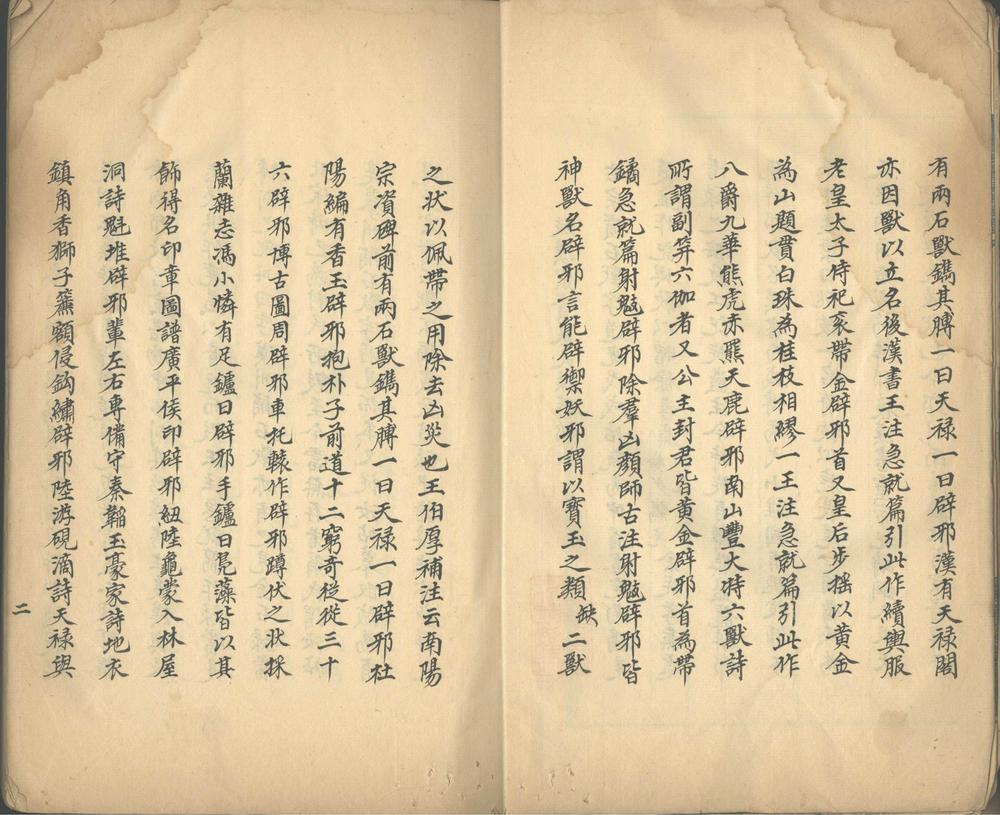 有兩石獸鐫其膊一曰天禄一曰辟邪漢有天禄閣
亦因獸以立名後漢書王注急就篇引此作續輿服
老皇太子侍祀衮帶金辟邪首又皇后步摇以黄金
為山題貫白珠為桂枝相繆一王注急就篇引此作
八爵九華熊虎赤羆天鹿辟邪南山豐大特六獸詩
所謂副笄六伽者又公主封君皆黄金辟邪首為帶
鐍急就篇射鬾辟邪除羣凶顔師古注射鬾辟邪皆
神獸名辟邪言能辟禦妖邪謂以寳玉之類缺二獸
之状以佩帶之用除去凶災也王伯厚補注云南陽
宗資碑前有兩石獸鐫其膊一曰天禄一曰辟邪杜
陽編有香玉辟邪抱朴子前道十二窮奇從從三十
六辟邪博古圖周辟邪車托轅作辟邪蹲伏之状採
蘭雜志馮小憐有足鑪曰辟邪手鑪曰鳬藻皆以其
飾得名印章圖譜廣平侯印辟邪紐陸龜蒙入林屋
洞詩魁堆辟邪輩左右專備守秦韜玉豪家詩地衣
鎮角香獅子簾額侵鈎繡辟邪陸游硯滴詩天禄與
二